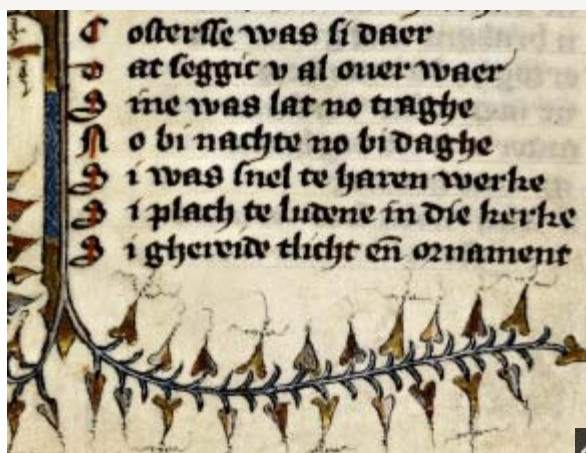 C osterſſe was ſi daer
D at ſeggic v al ouer waer
S ine was lat no traghe
N o bi nachte no bi daghe
S i was ſnel te haren werke
S i plach te ludene in die kerke
S i ghereide tlicht en̄ ornament